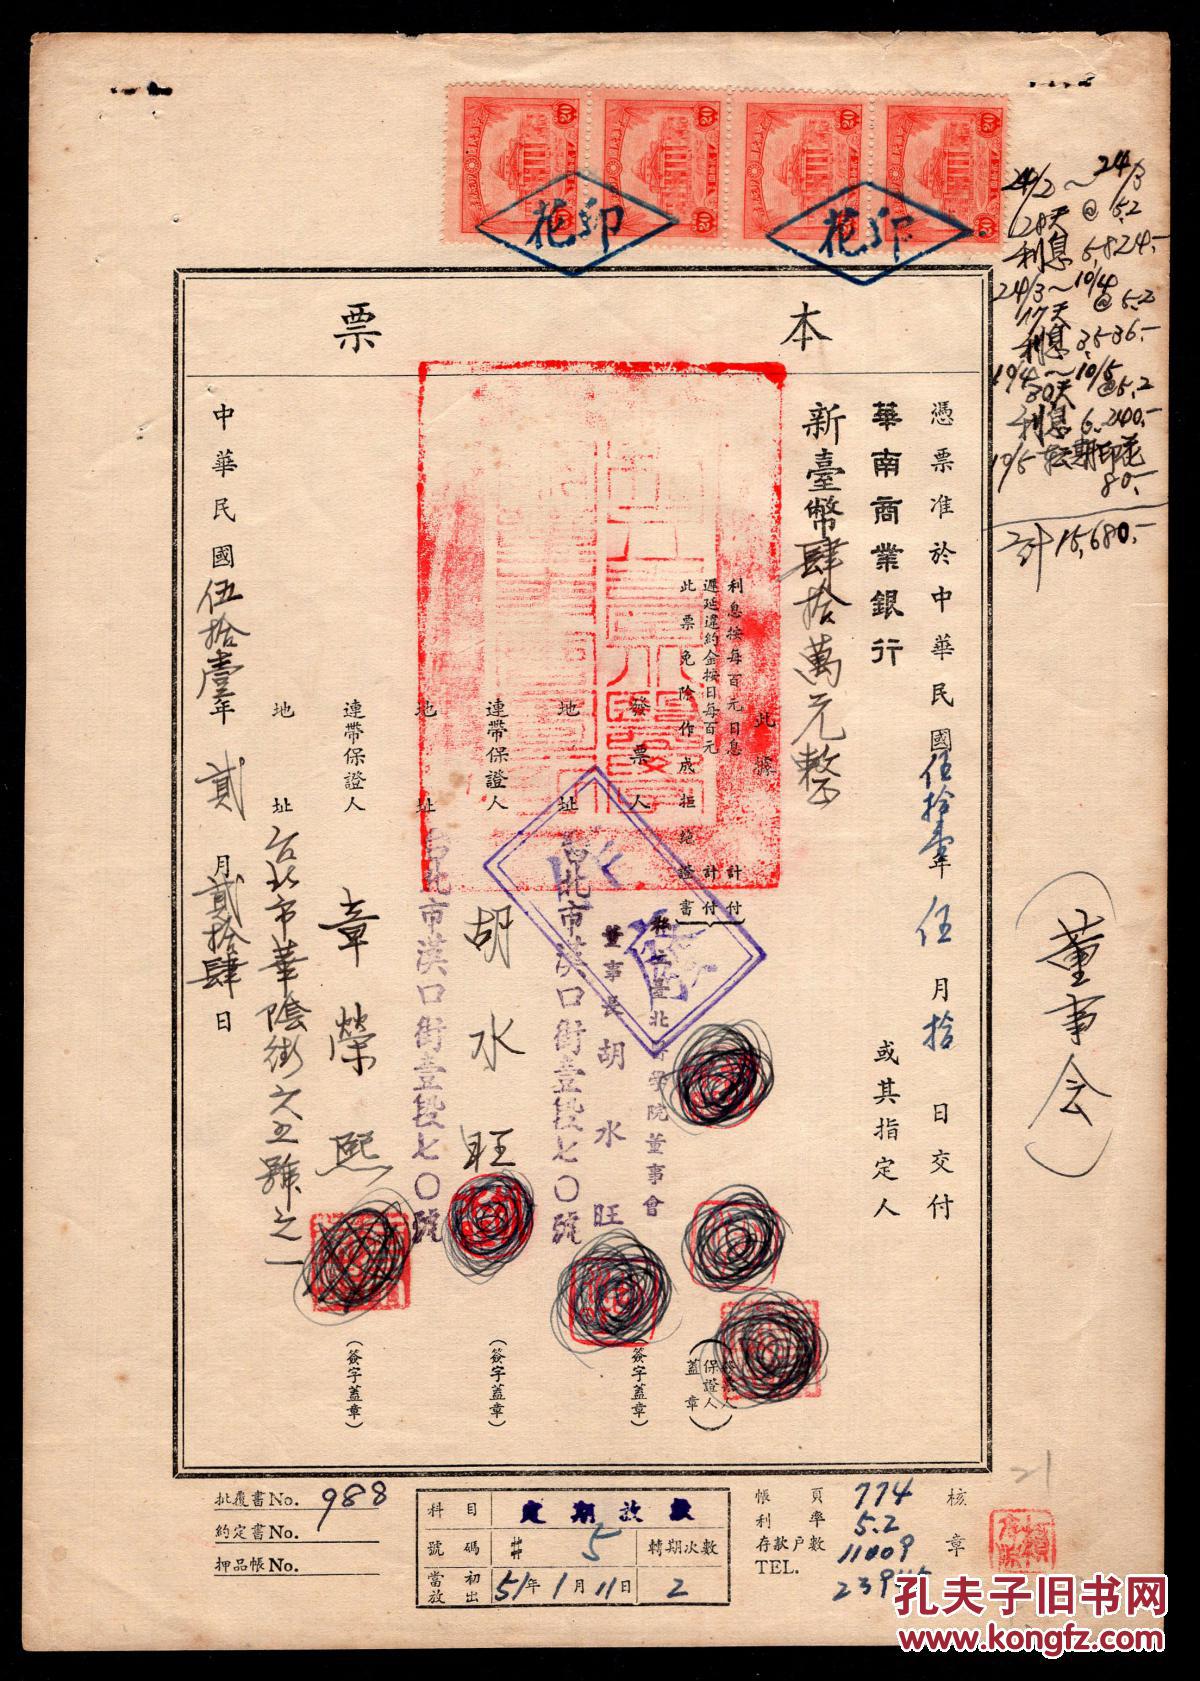 本票
憑票准於中華民國伍拾壹年伍月拾日交付
華南商業銀行 或其指定人
新臺幣肆拾萬元整
此據
利息按每百元日息 計付
遲延違約金按日每百元 計付
此票免除作成拒絕證書
發票人 私立臺北醫學院董事會
董事長 胡水旺 (簽字蓋章)
地址 台北市漢口街壹段七〇號
連帶保證人 胡水旺 (簽字蓋章)
地址 台北市漢口街壹段七〇號
連帶保證人 章榮熙 (簽字蓋章)
地址 台北市華陰街六五號之一
中華民國伍拾壹年貳月貳拾肆日
保證人
蓋章
印花
印花
24/2～24/3
28天 @5.2
利息 5,824.-
24/3～10/4
17天 @5.2
利息 3,536.-
10/4～10/5
30天 @5.2
利息 6,240.-
10/5 転期印花
80.-
計 15,680.-
(董事会)
批覆書No. 988
約定書No.
押品帳No.
科目 定期放款
號碼 # 5 轉期次數
當初放出 51年1月11日 2
帳頁 774
利率 5.2
存款戶數 11009
TEL.
核章
21
孔夫子旧书网
www.kongfz.com